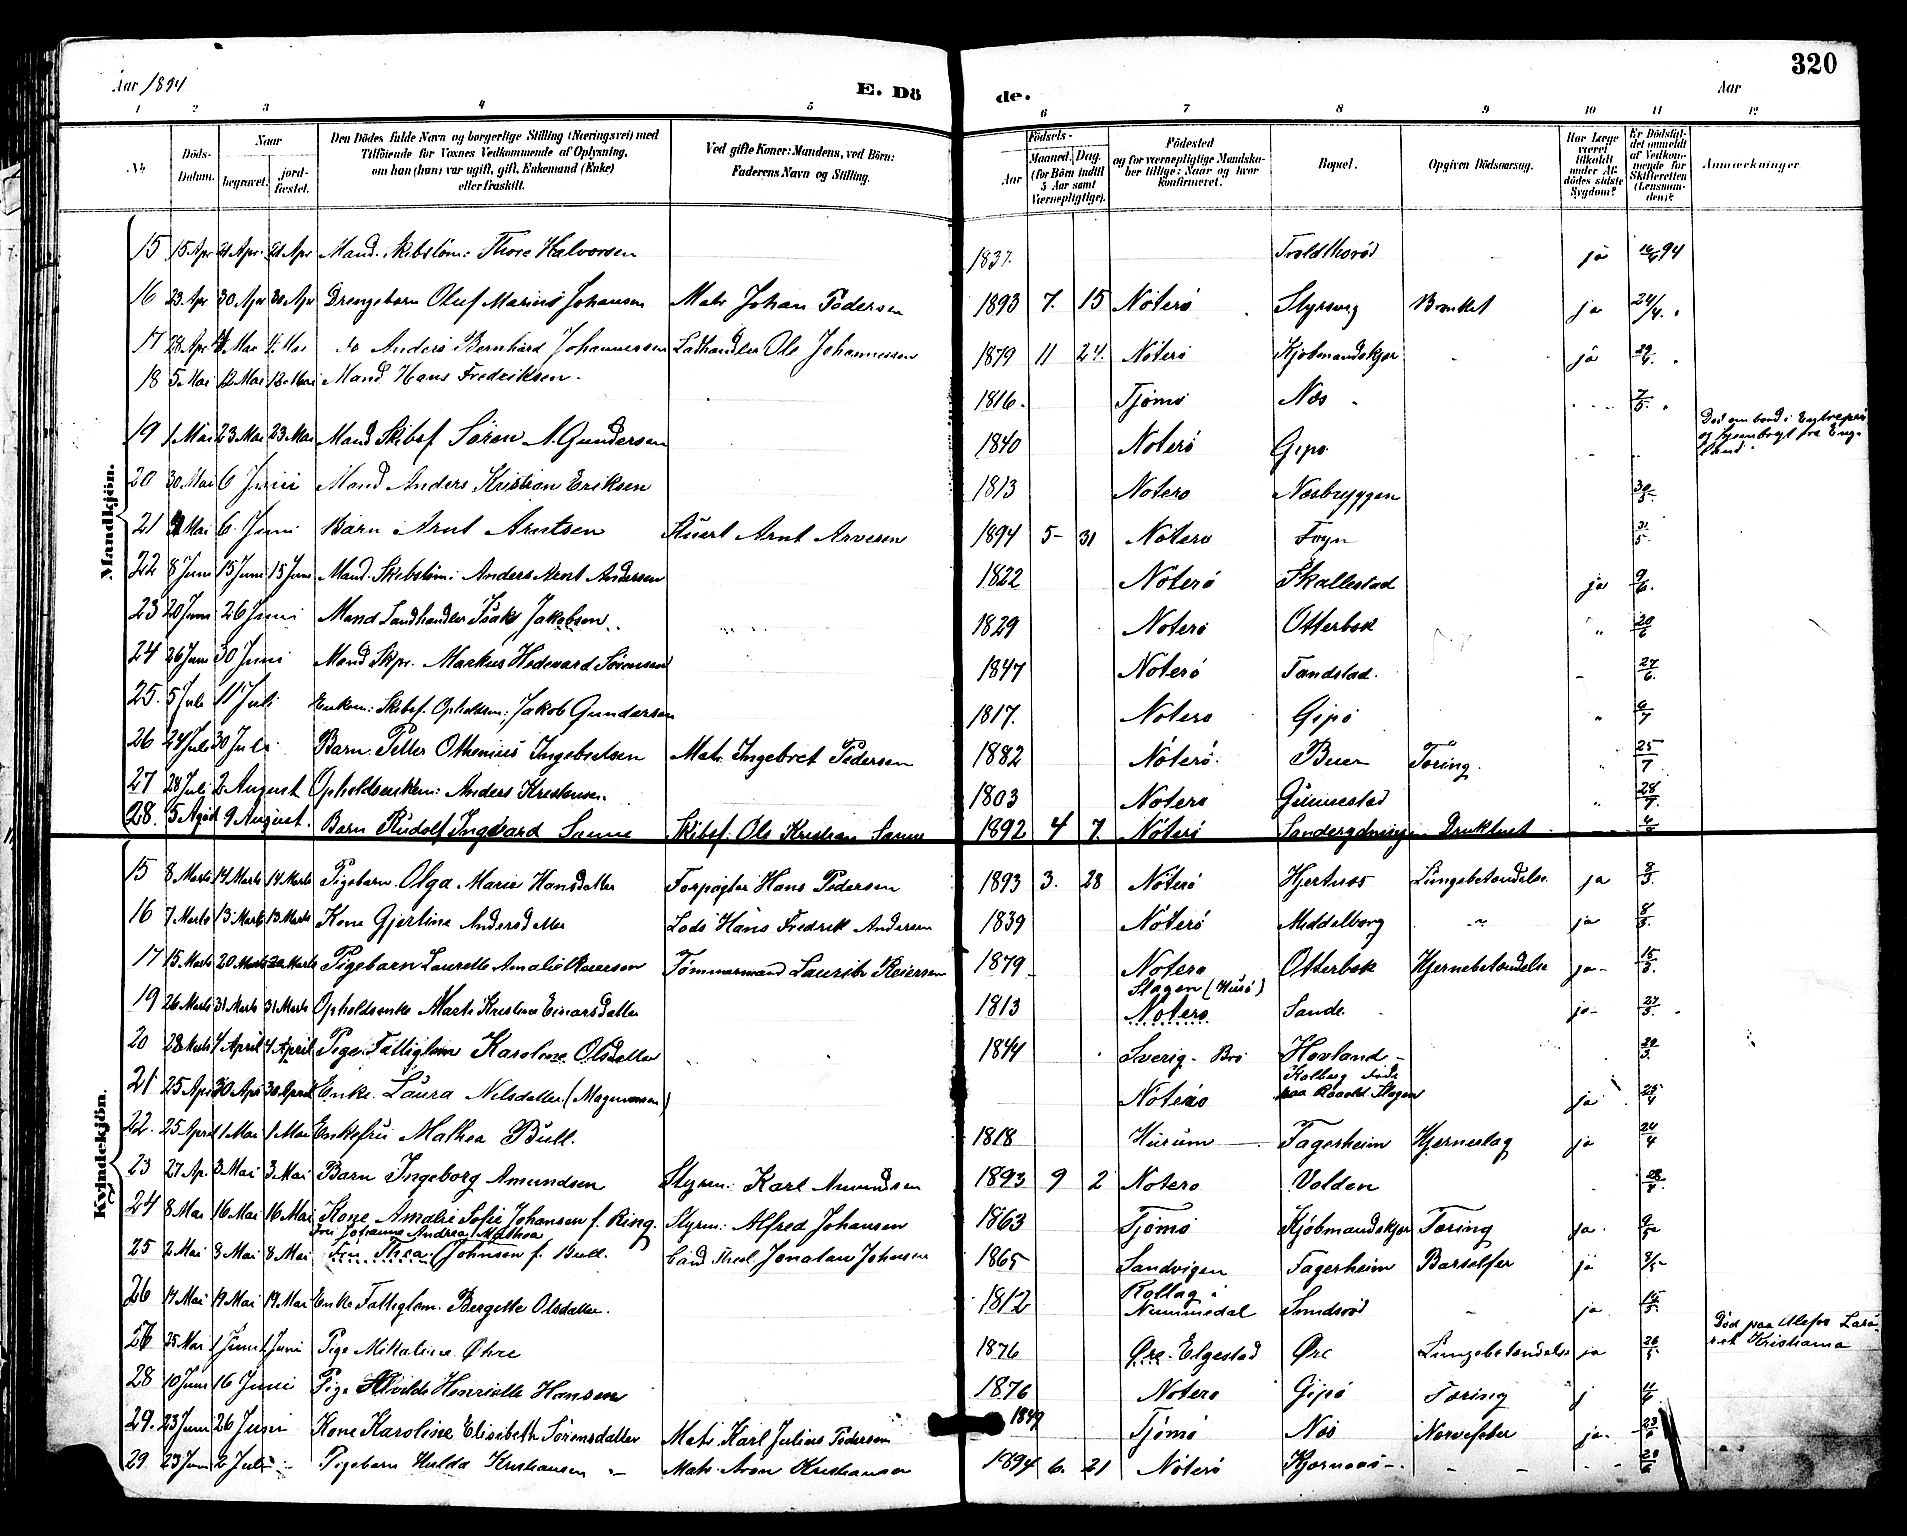 Aar 1894
E. Dö de.
320
Aar
1 2 3 4 5 6 7 8 9 10 11 12
No
Döds-Datum.
Naar
begravet.
jord-fæstet.
Den Dödes fulde Navn og borgerlige Stilling (Næringsvei) med
Tilföiende for Voxnes Vedkommende af Oplysning,
om han (hun) var ugift, gift, Enkemand (Enke)
eller fraskilt.
Ved gifte Koner: Mandens, ved Börn:
Faderens Navn og Stilling.
Födsels-
Aar
Maaned. Dag.
(for Börn indtil
5 Aar samt
Værnepligtige).
Födested
og for værnepligtige Mandska-
ber tillige: Naar og hvor
konfirmeret.
Bopæl.
Opgiven Dödsaarsag.
Har Læge
været
tilkaldt
under Af-
dödes sidste
Sygdom?
Er Dödsfal-
det anmeldt
af Vedkom-
mende for
Skifteretten
(Lensman-
den)?
Anmærkninger
Mandkjön.
15 15 Apr 21 Apr 21 Apr Mand. Skibstöm: Thore Halvorsen 1837. Troldthorød ja 94
16 23 Apr 30 Apr 30 Apr Drengebarn Oluf Marius Johansen Matr Johan Pedersen 1893 7. 15 Nöterö Styrsvig Bronket ja 24/4
17 28 Apr Mai Mai do Anders Bernhard Johannessen Ladhandler Ole Johannessen 1879 11 24. Nöterö Kjöbmandskjær ja
18 5 Mai 12 Mai 12 Mai Mand Hans Fredriksen. 1816. Tjömö Næs 7/5
19 1 Mai 23 Mai 23 Mai Mand Skibsf Sören A. Gundersen 1840 Nöterö Gipö Död om bord i
og hjembragt fra Eng-
land
20 30 Mai 6 Juni Mand Anders Kristian Eriksen 1813 Nöterö Næsbryggen 30/5
21 Mai 6 Juni Barn Arnt Arntsen Stuert Arnt Arvesen 1894 5 31 Nöterö Föyn 31/5
22 8 Juni 15 Juni 15 Juni Mand. Skibstöm: Anders Arnt Andersen 1822 Nöterö Skallestad ja 9/6
23 20 Juni 26 Juni Mand Landhandler Isak Jakobsen 1829 Nöterö Otterbæk " 20/6
24 26 Juni 30 Juni Mand Skpr. Markus Hedevard Sörensen 1847 Nöterö Tandstad. 27/6
25. 5 Juli 11 Juli Enkem: Skibsf. Opholdsm: Jakob Gundersen 1817. Nöterö Gipö " 9/7
26 24 Juli 30 Juli Barn Petter Othenius Ingebretsen Matr Ingebret Pedersen 1882 Nöterö Buer Tæring. " 25/7
27 28 Juli 2 August Opholdsenkem: Anders Kristensen 1803 Nöterö Gunnestad " 28/7
28. 5 Augst 9 August. Barn Rudolf Ingvard Sanne Skibsf: Ole Kristian Sanne 1892 4 7. Nöterö Sanderydningen Druknet
Kvindekjön.
15 8 Marts 14 Marts 14 Marts Pigebarn Olga Marie Hansdatter Forpagter Hans Pedersen 1893 3. 28 Nöterö Hjertnæs Lungebetændelse ja 8/3
16 7 Marts 13 Marts 13 Marts Kone Gjertine Andersdatter Lods Hans Fredrik Andersen 1839 Nöterö Middelborg " ja 8/3
17 15 Marts 20 Marts 20 Marts Pigebarn Laurette Amalie Reiersen Tömmermand Laurits Reiersen 1879 Nöterö Otterbæk Hjernebetændelse ja 15/3
19 26 Marts 31 Marts 31 Marts Opholdsenke Marte Kristine Einarsdatter 1813 Slagen (Husö) Nöterö Sande ja 27/3
20 28 Marts 4 April 4 April Pige Fattiglem Karoline Olsdatter 1844 Sverig - Bro Hovland
21 25 Apr 30 Apr 30 April Enke Laura Nilsdatter (Magnussen) Nöterö Kolberg Död paa Slagen ja 25/4
22. 25 April 1 Mai 1 Mai Enkefru Mathea Bull. 1818 Hurum Fagerheim Hjerneslag ja 24/4
23 27 Ap. 3 Mai 3 Mai Barn Ingeborg Amundsen Styrm: Karl Amundsen 1893 9 2 Nöterö Volden 28/4
24 8 Mai 16 Mai 16 Mai Kone Amalie Sofie Johansen f. Ring Styrm: Alfred Johansen 1863 Tjömö Kjöbmandskjær Tæring ja 9/5
25 2 Mai 8 Mai 8 Mai Fru Johanne Andrea Mathea
Fru Thea Johnson f. Bull. Cand Theol Jonatan Johnson 1865 Sandvigen Fagerheim Barselfeber ja 3/5
26 14 Mai 19 Mai 19 Mai Enke Fattiglem Bergitte Olsdatter 1812 Rollag i Nummedal Smidsröd ja 15/5
27 25 Mai 1 Juni 1 Juni Pige Mikaline Öhre 1876 Öre Elgestad Öre Lungebetændelse ja 26/5 Död paa
Kristiania
28 10 Juni 16 Juni Pige Alvilde Henriette Hansen 1876 Nöterö Gipö Tæring j 11/6
29. 23 Juni 26 Juni Kone Karoline Elisabeth Sörensdatter Matr. Karl Julius Pedersen 1849 Tjömö Næs Nervefeber ja 23/6
29 23 Juni 2 Juli Pigebarn Hulda Kristiansen Matr Aron Kristiansen 1894 6. 21 Nöterö Kjærnaas